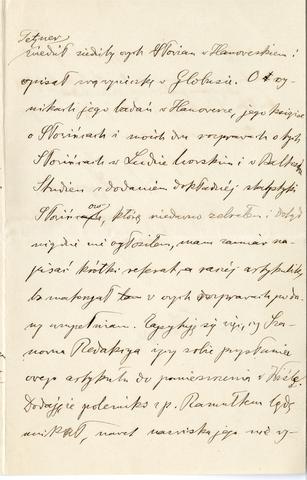 Tetzner
zwiedził siedziby owych Słowian w Hanowerskiem i
opisał swą wycieczkę w Globusie. O wy-
nikach jego badań w Hanowerze, jego książce
o Słowińcach i moich dwu rozprawach o tych
Słowińcach w Ludzie lwowskim i w Baltische
Studien z dodaniem dokładnej statystyki
Słowińców, którą niedawno zebrałem i dotąd
nigdzie nie ogłosiłem, mam zamiar na-
pisać krótki referat, a raczej artykulik,
bo materyał ten w owych rozprawach poda-
ny uzupełniam. Zapytuję się więc, czy Sza-
nowna Redakcya życzy sobie przysłanie
owego artykułu do pomieszczenia w Wiśle,
Dodaję, że polemiki z p. Ramułtem będę
unikał, nawet nazwiska jego nie wy-